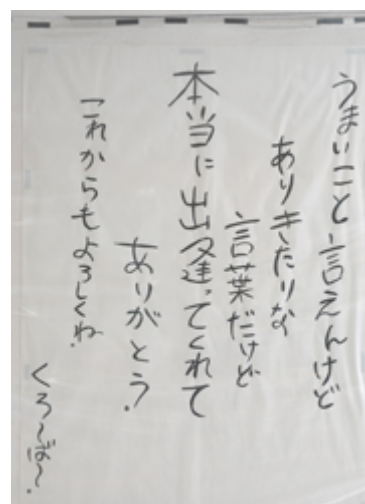 うまいこと言えんけど
ありきたりな
言葉だけど
本当に出逢ってくれて
ありがとう!
これからもよろしくね.
くろ〜ば〜.